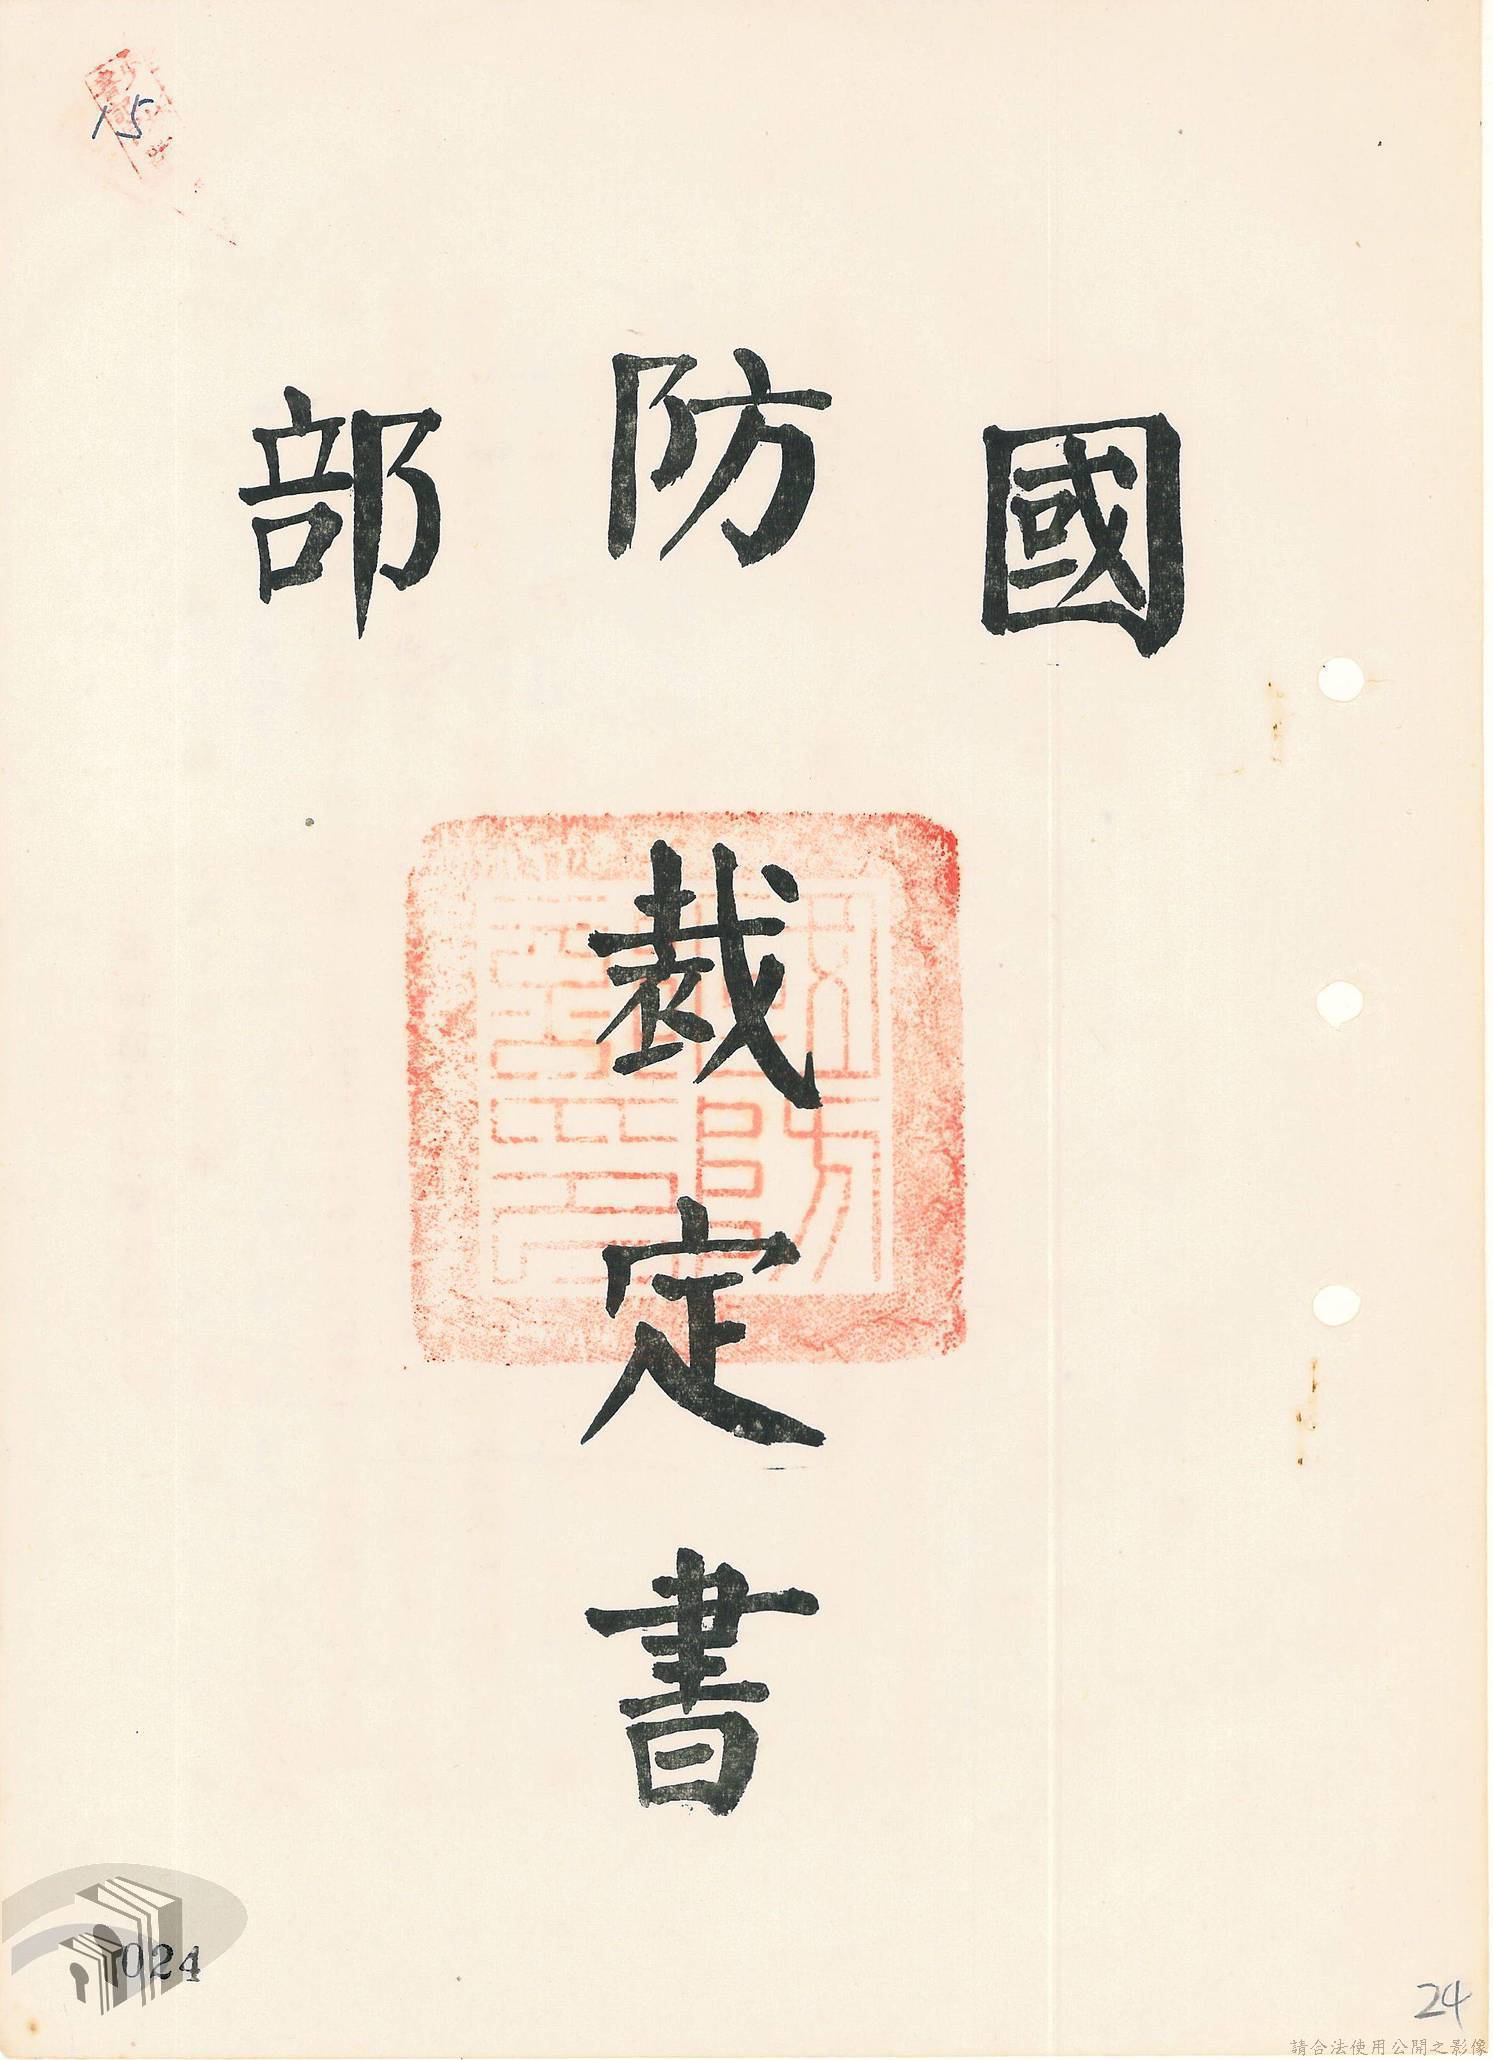 15
國防部
裁定書
024
24
請合法使用公開之影像